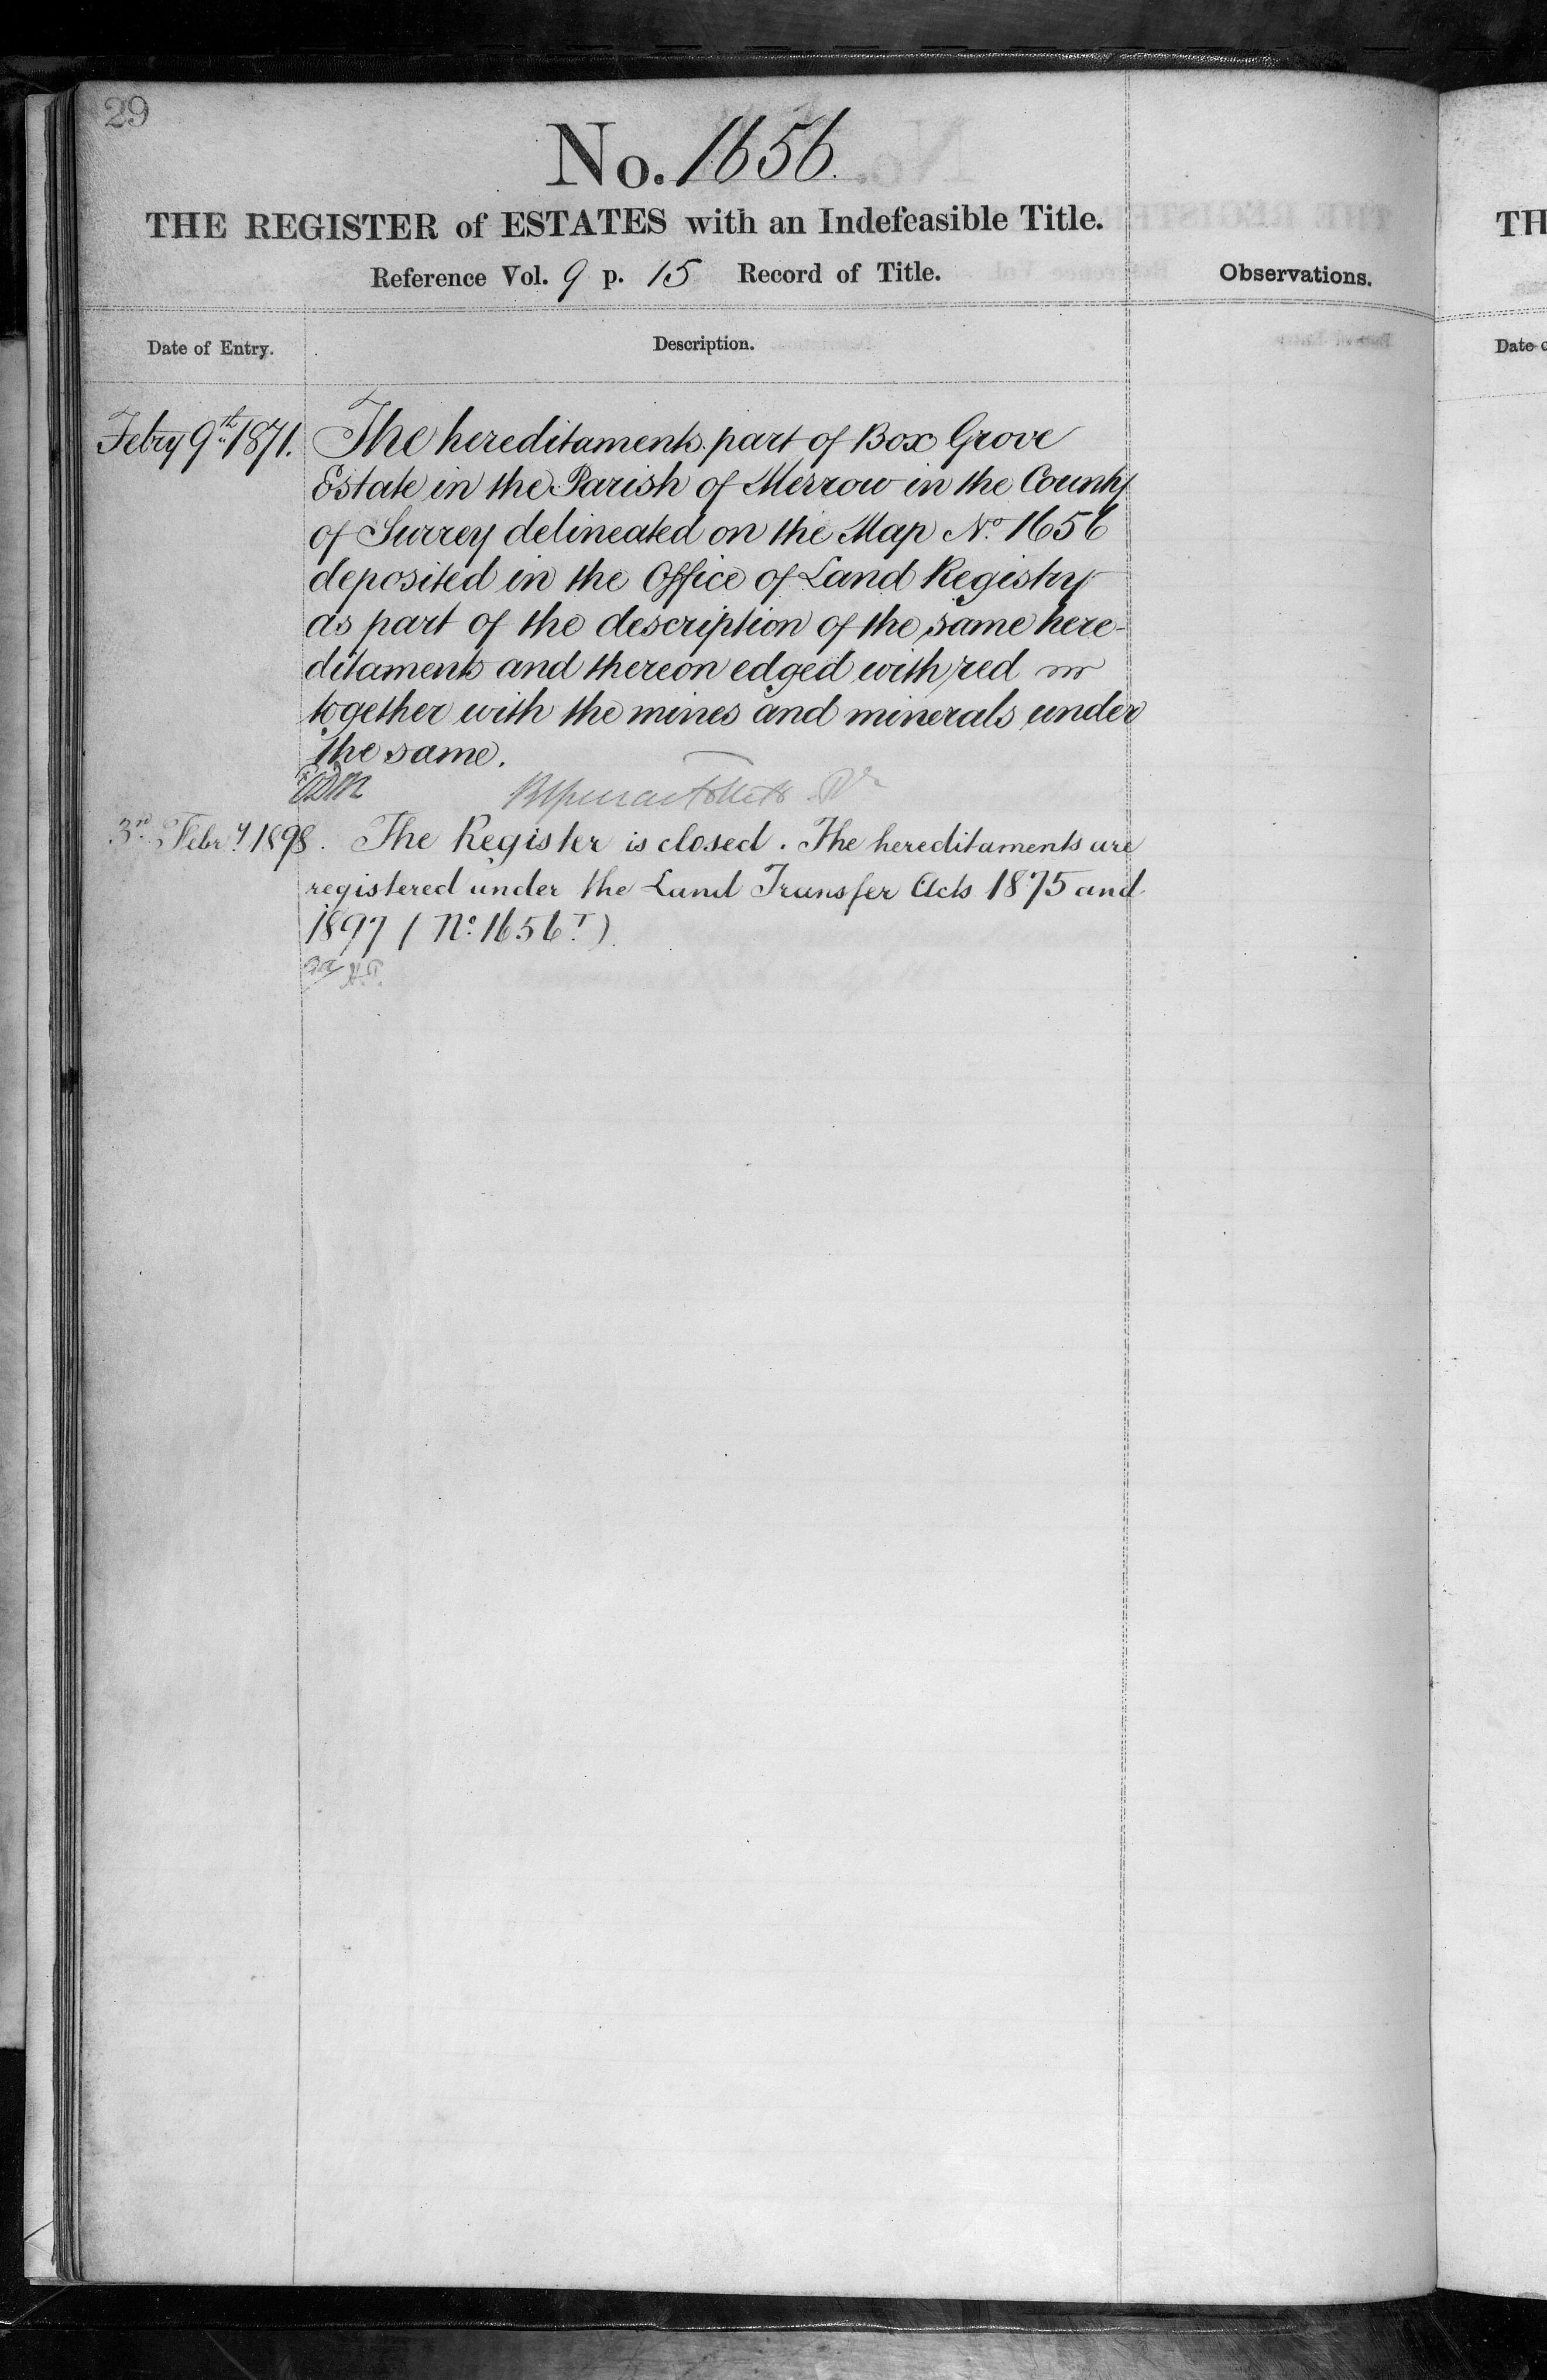 29
No. 1656.
THE REGISTER of ESTATES with an Indefeasible Title.
Reference Vol. 9 p. 15 Record of Title.
Observations.
Date of Entry.
Description.
Febry 9th 1871. The hereditaments part of Box Grove
Estate in the Parish of Merrow in the County
of Surrey delineated on the Map No. 1656
deposited in the Office of Land Registry
as part of the description of the same here-
ditaments and thereon edged with red
together with the mines and minerals under
the same.
3rd Febry 1898. The Register is closed. The hereditaments are
registered under the Land Transfer Acts 1875 and
1897 (No. 1656T)
TH
Date